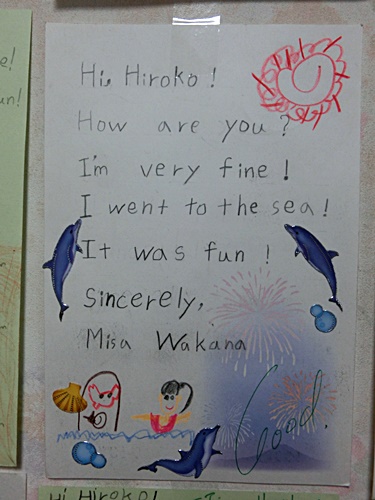 Hi, Hiroko!
How are you?
I'm very fine!
I went to the sea!
It was fun!
Sincerely,
Misa Wakana
Good.
e!
un!
Hi Hiroko!